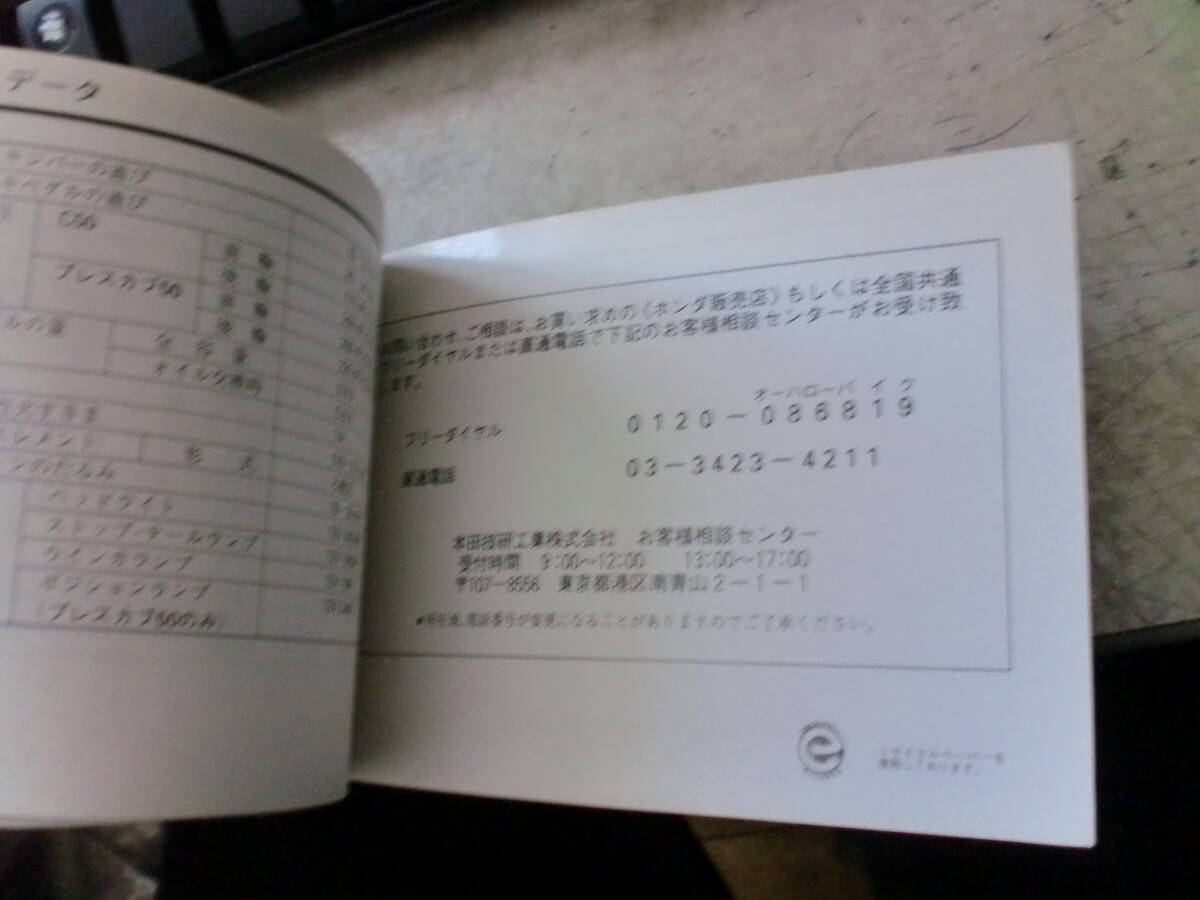 データ
キレバーの遊び
キペダルの遊び
C50
プレスカブ50
ルの量
オイル交換時
エレメント
形 式
ンのたるみ
ヘッドライト
ストップ・テールランプ
ウインカランプ
ポジションランプ
(プレスカブ50のみ)
問い合わせ、ご相談は、お買い求めの《ホンダ販売店》もしくは全国共通
フリーダイヤルまたは直通電話で下記のお客様相談センターがお受け致
します。
オーハローバイク
フリーダイヤル 0120-086819
直通電話 03-3423-4211
本田技研工業株式会社 お客様相談センター
受付時間 9:00〜12:00 13:00〜17:00
〒107-8556 東京都港区南青山2-1-1
所在地、電話番号が変更になることがありますのでご了承ください。
リサイクルペーパーを
使用しております。